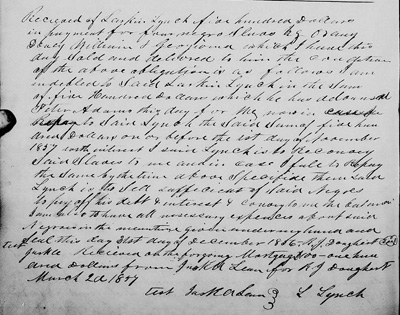 Received of Larkin Lynch five hundred Dollars
in payment for four negro Slaves Eg
Davey William & Georgiana which I have this
day Sold and delivered to him the Condition
of the above obligation is as follows I am
indebted to Said Larkin Lynch in the Sum
of five Hundred Dollars which he has advanced
this day for Me now in case
repay to Said Lynch the Said Sum of five hun
dred Dollars on or before the 1st day of November
1857 with interest I Said Lynch is to Reconvey
Said Slaves to me and in case I fail to Repay
the Same by the time above Specified then Said
Lynch is to Sell sufficient of Said Negros
to pay off his debt & interest & Convey to me the balance
I am also to have all necessary expences about said
Negros in the meantime given under my hand and
Seal this day 31st day of December 1856. R J Daughert Seal
test
Received on the forgoing Mortgage 100 - one hun
dred Dollars from for R J Daughert
March 2d 1857
test L Lynch